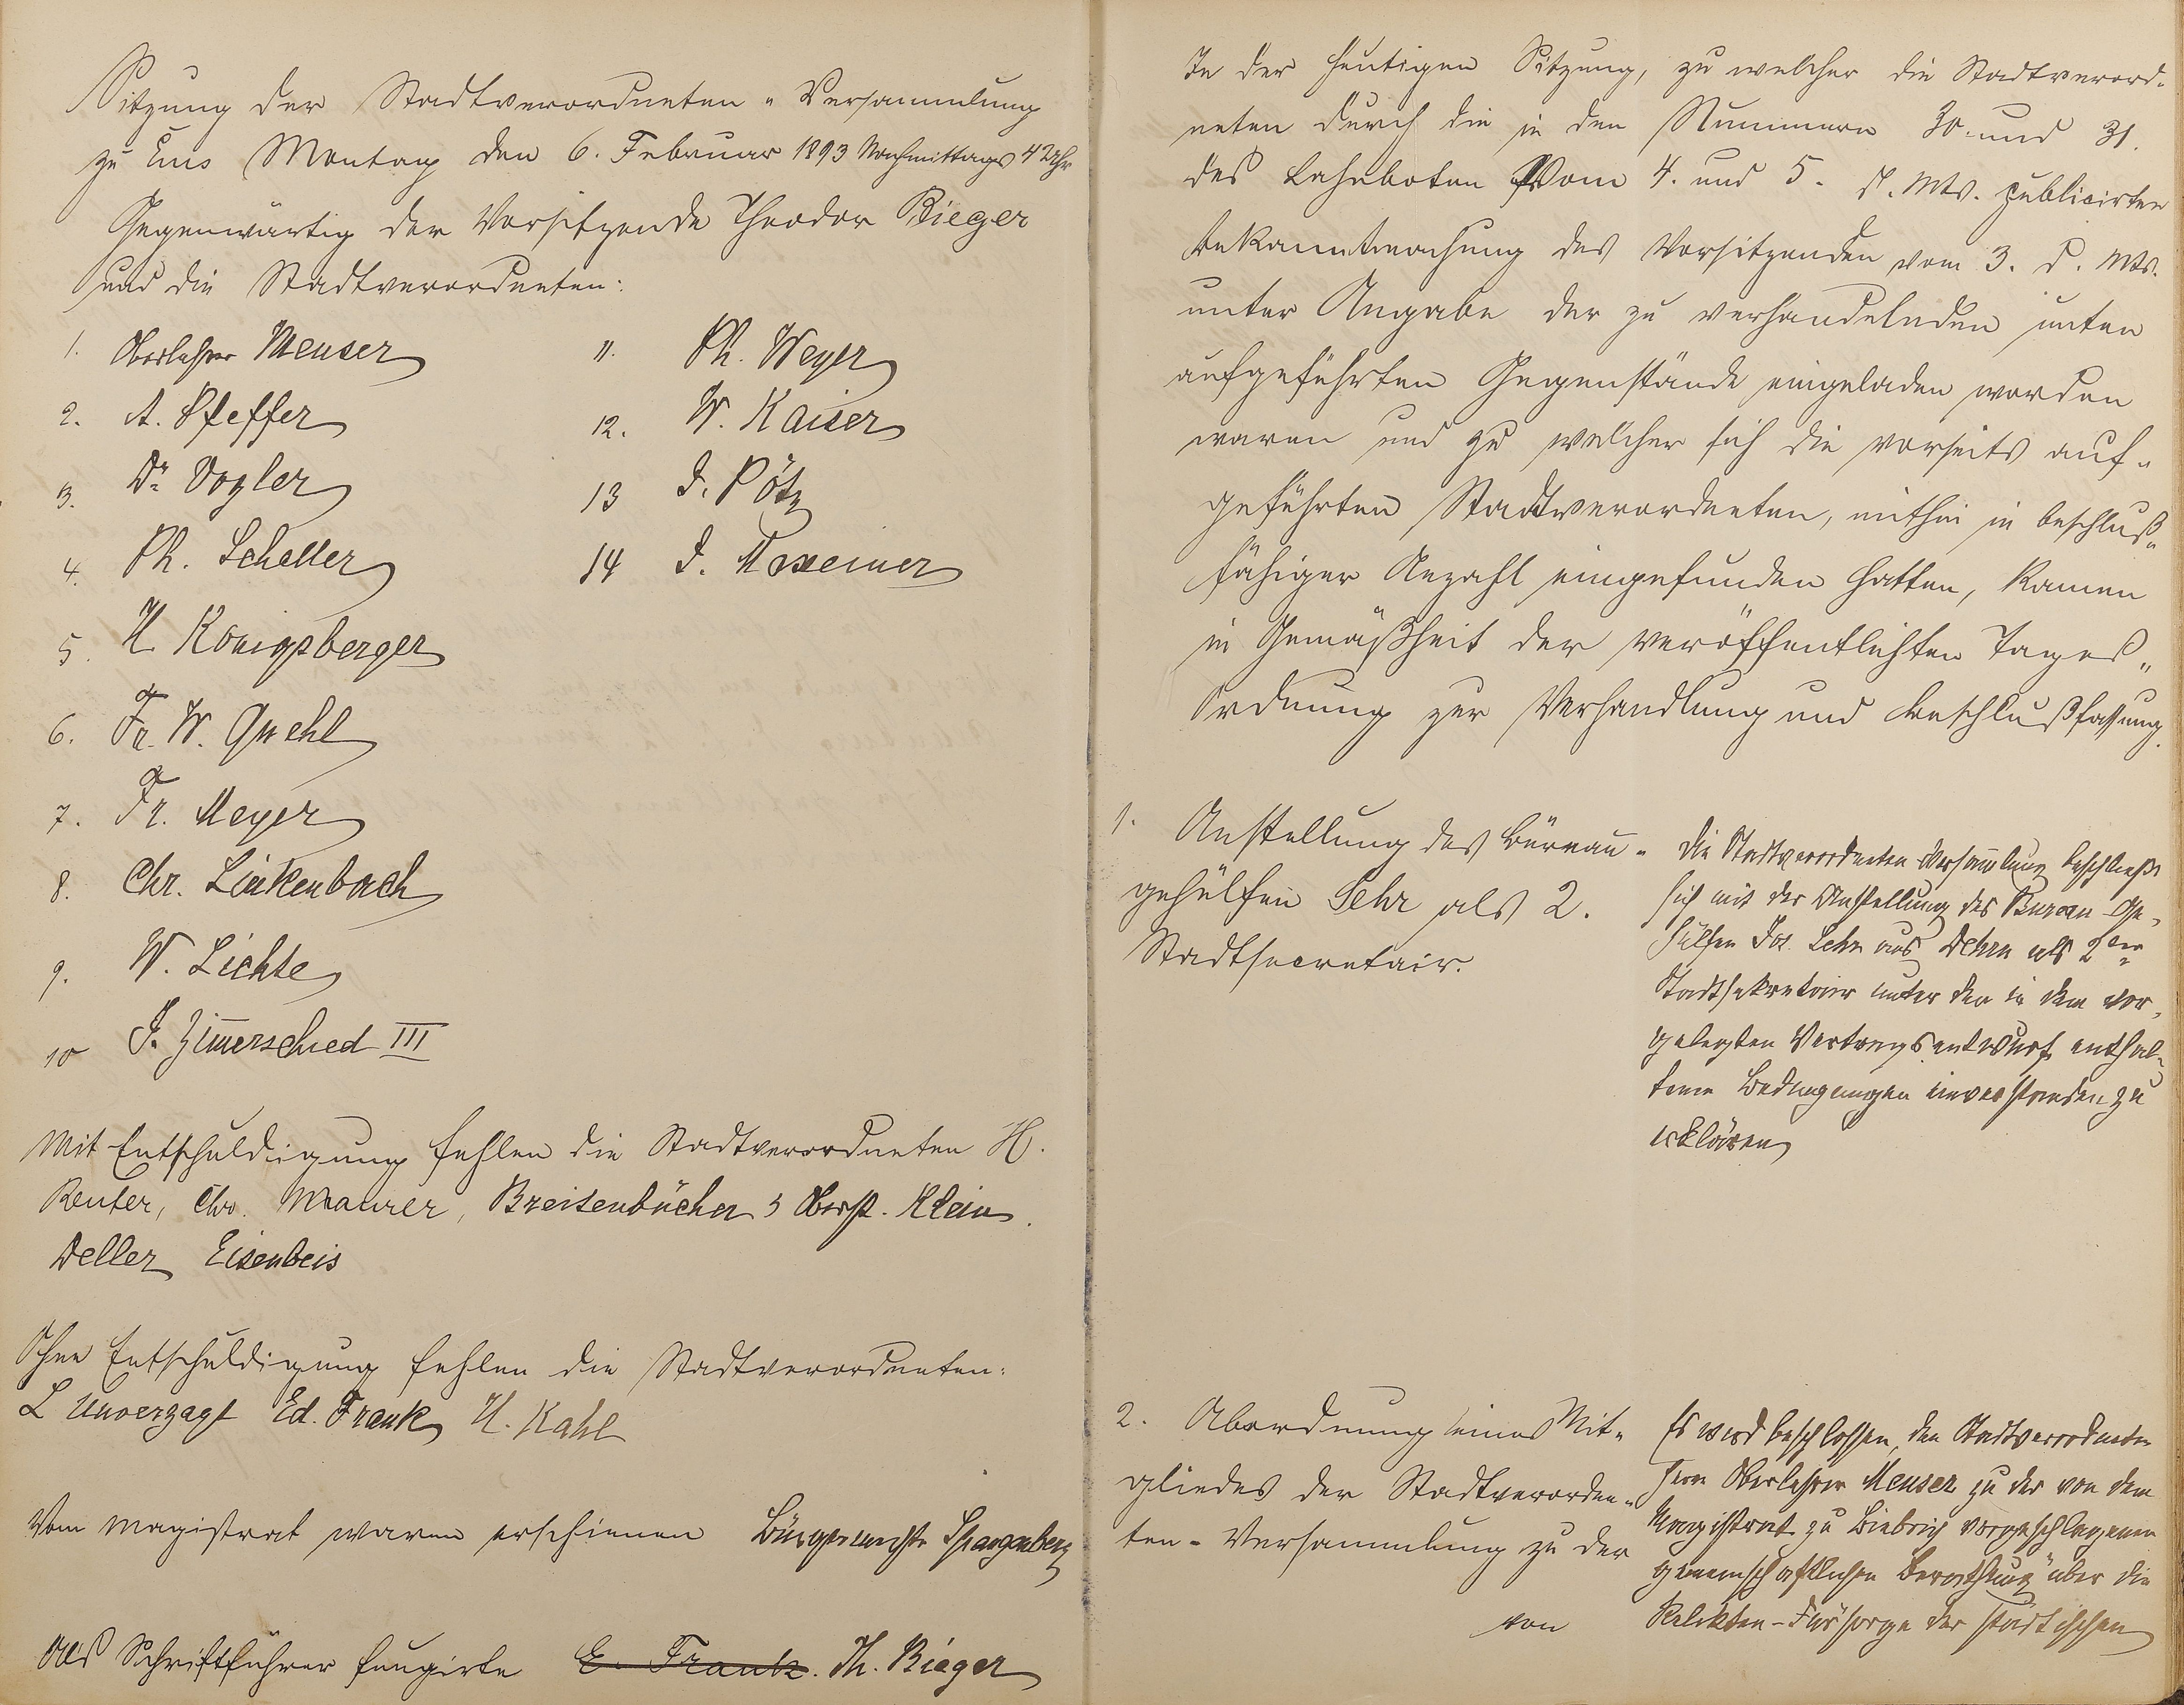 Sitzung der Stadtverordneten-Versammlung
zu Ems Montag den 6. Februar 1893 Nachmittags 4 Uhr
Gegenwärtig der Vorsitzende Theodor Bieger
und die Stadtverordneten:
1. Oberlehrer Meuser
2. A. Pfeffer
3. Dr Vogler
4. Ph. Scheller
5. H. Königsberger
6. Fr. W. Quehl
7. Fr. Meyer
8. Chr. Linkenbach
9. W. Lichte
10 J. Zim̅erschied III
11. Ph. Weyer
12. W. Kaiser
13 J. Pötz
14 J. Maxeiner
Mit Entschuldigung fehlen die Stadtverordneten H.
Reuter, Chr. Maurer, Breitenbücher, Oberst. Klein.
Deller Eisenbeis
Ohne Entschuldigung fehlen die Stadtverordneten:
L Unverzagt Ed. Frank H. Kahl
Vom Magistrat waren erschienen Bürgermstr Spangenberg
Als Schriftführer fungirte E. Frank. Th. Bieger
In der heutigen Sitzung, zu welcher die Stadtverord-
neten durch die in den Nummern 30. und 31.
des Lahnboten vom 4. und 5. d. Mts. publicirten
Bekanntmachung des Vorsitzenden vom 3. d. Mts.
unter Angabe der zu verhandelnden unten
aufgeführten Gegenstände eingeladen worden
waren und zu welcher sich die vorseits auf-
geführten Stadtverordneten, mithin in beschluß-
fähiger Anzahl eingefunden hatten, kamen
in Gemäßheit der veröffentlichten Tages-
Ordnung zur Verhandlung und Beschlußfassung.
1. Anstellung des Büreau-
gehülfen Lehr als 2.
Stadtsecretair.
Die Stadtverordneten-Versam̅lung beschließt
sich mit der Anstellung des Bureau-Ge-
hülfen Jos. Lehr aus Dehrn als 2ter
Stadtsekretair unter den in dem vor-
gelegten Vertragsentwurf enthal-
tenen Bedingungen einverstanden zu
erklären
2. Abordnung eines Mit-
gliedes der Stadtverordne-
ten-Versammlung zu der
von
Es wird beschlossen, den Stadtverordneten
Herrn Oberlehrer Meuser zu der von dem
Magistrat zu Biebrich vorgeschlagenen
gemeinschaftlichen Berathung über die
Relikten-Fürsorge der städtischen